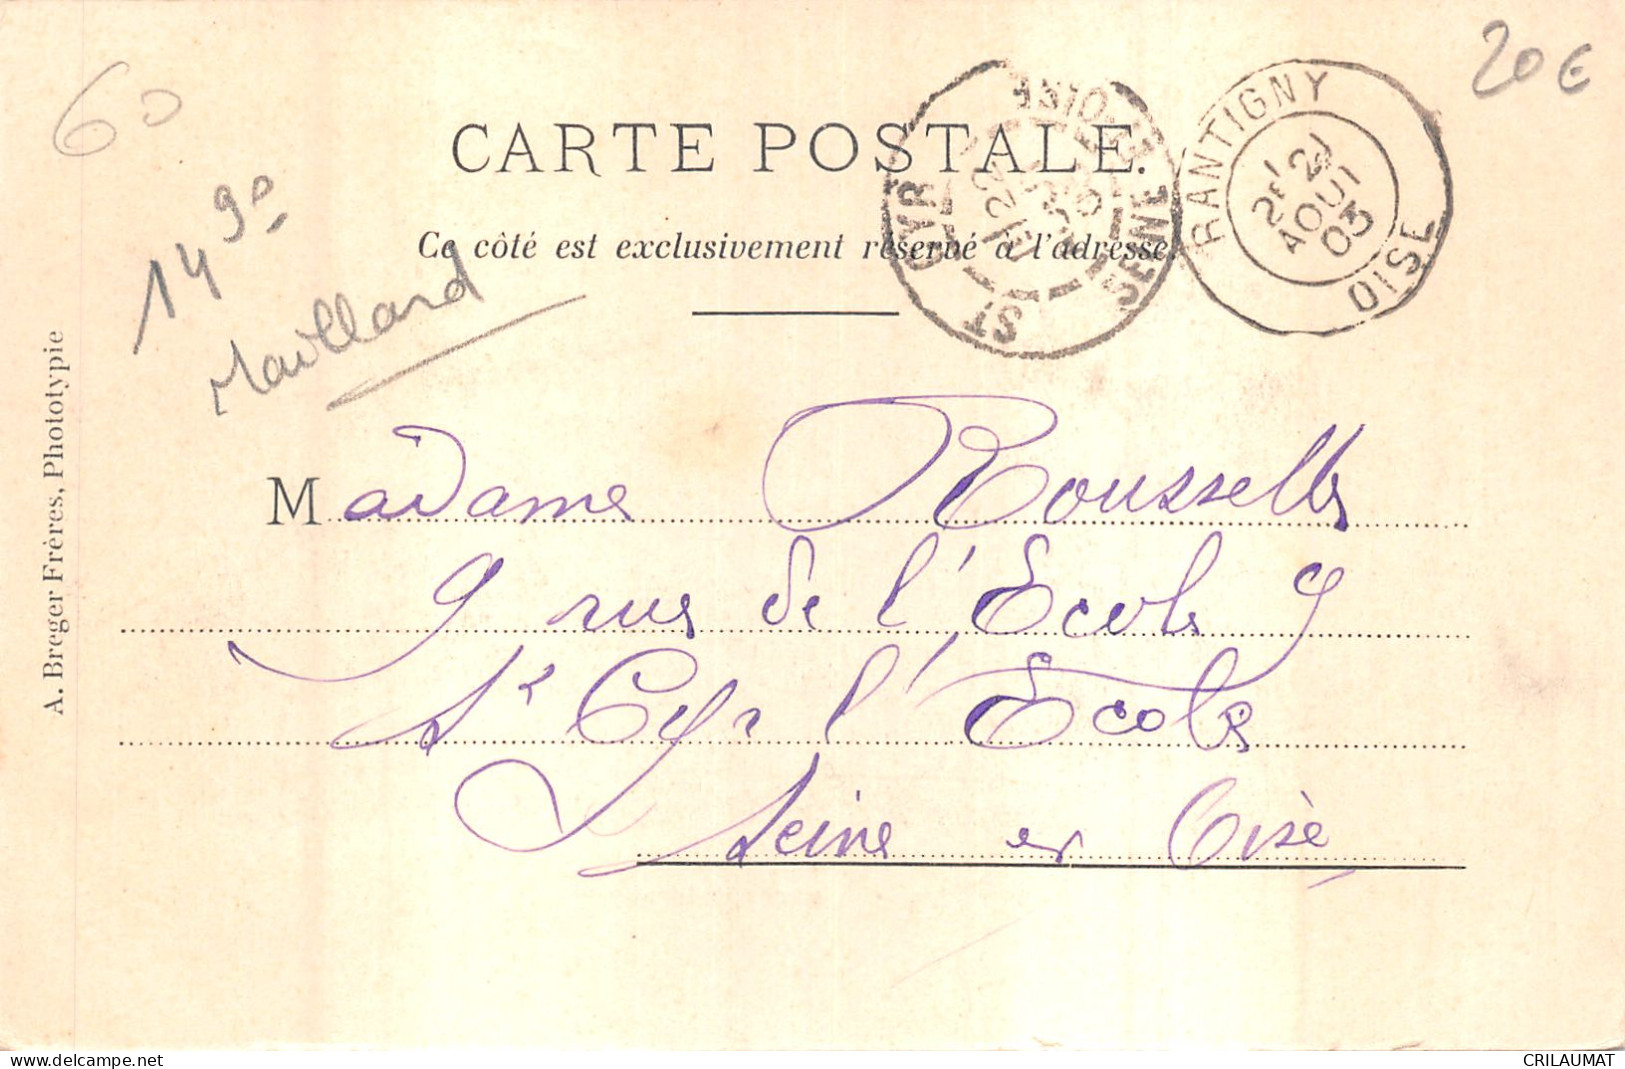 60
20€
CARTE POSTALE.
Ce côté est exclusivement réservé à l'adresse.
RANTIGNY
21
AOUT
03
OISE
ST CYR
SEINE ET OISE
22
149°
Maillard
A. Breger Frères, Phototypie
Madame Rousselle
9 rue de l'Ecole 9
St Cyr l'Ecole
Seine et Oise
www.delcampe.net
CRILAUMAT